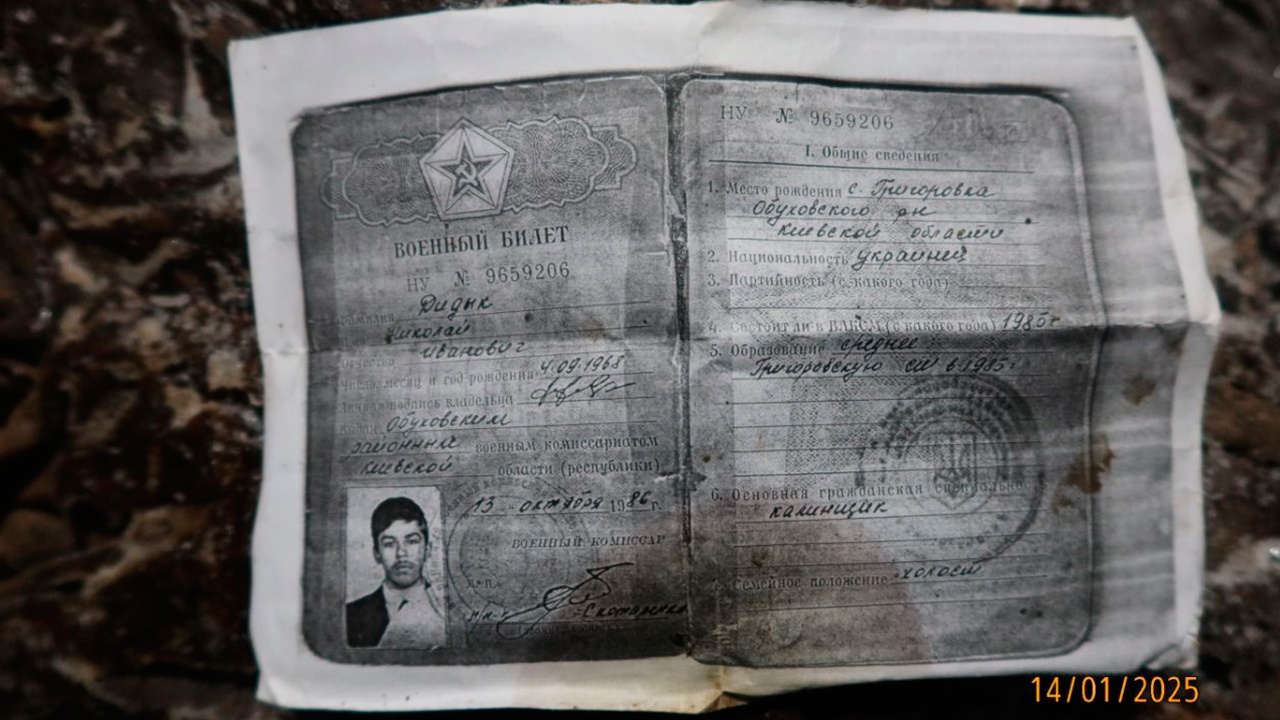 ВОЕННЫЙ БИЛЕТ
НУ № 9659206
Дидык
Николай
Иванович
Отчество
Число, месяц и год рождения 4.09.1968
Личная подпись владельца
Выдан Обуховским
районным военным комиссариатом
Киевской области (республики)
13 октября 1986 г.
ВОЕННЫЙ КОМИССАР
М.П.
НУ № 9659206
I. Общие сведения
1. Место рождения с. Григоровка
Обуховского р-н
Киевской области
2. Национальность украинец
3. Партийность (с какого года)
4. Состоит ли в ВЛКСМ (с какого года) 1985г
5. Образование среднее
Григоровскую СШ в 1985г.
6. Основная гражданская специальность
7. Семейное положение холост
14/01/2025